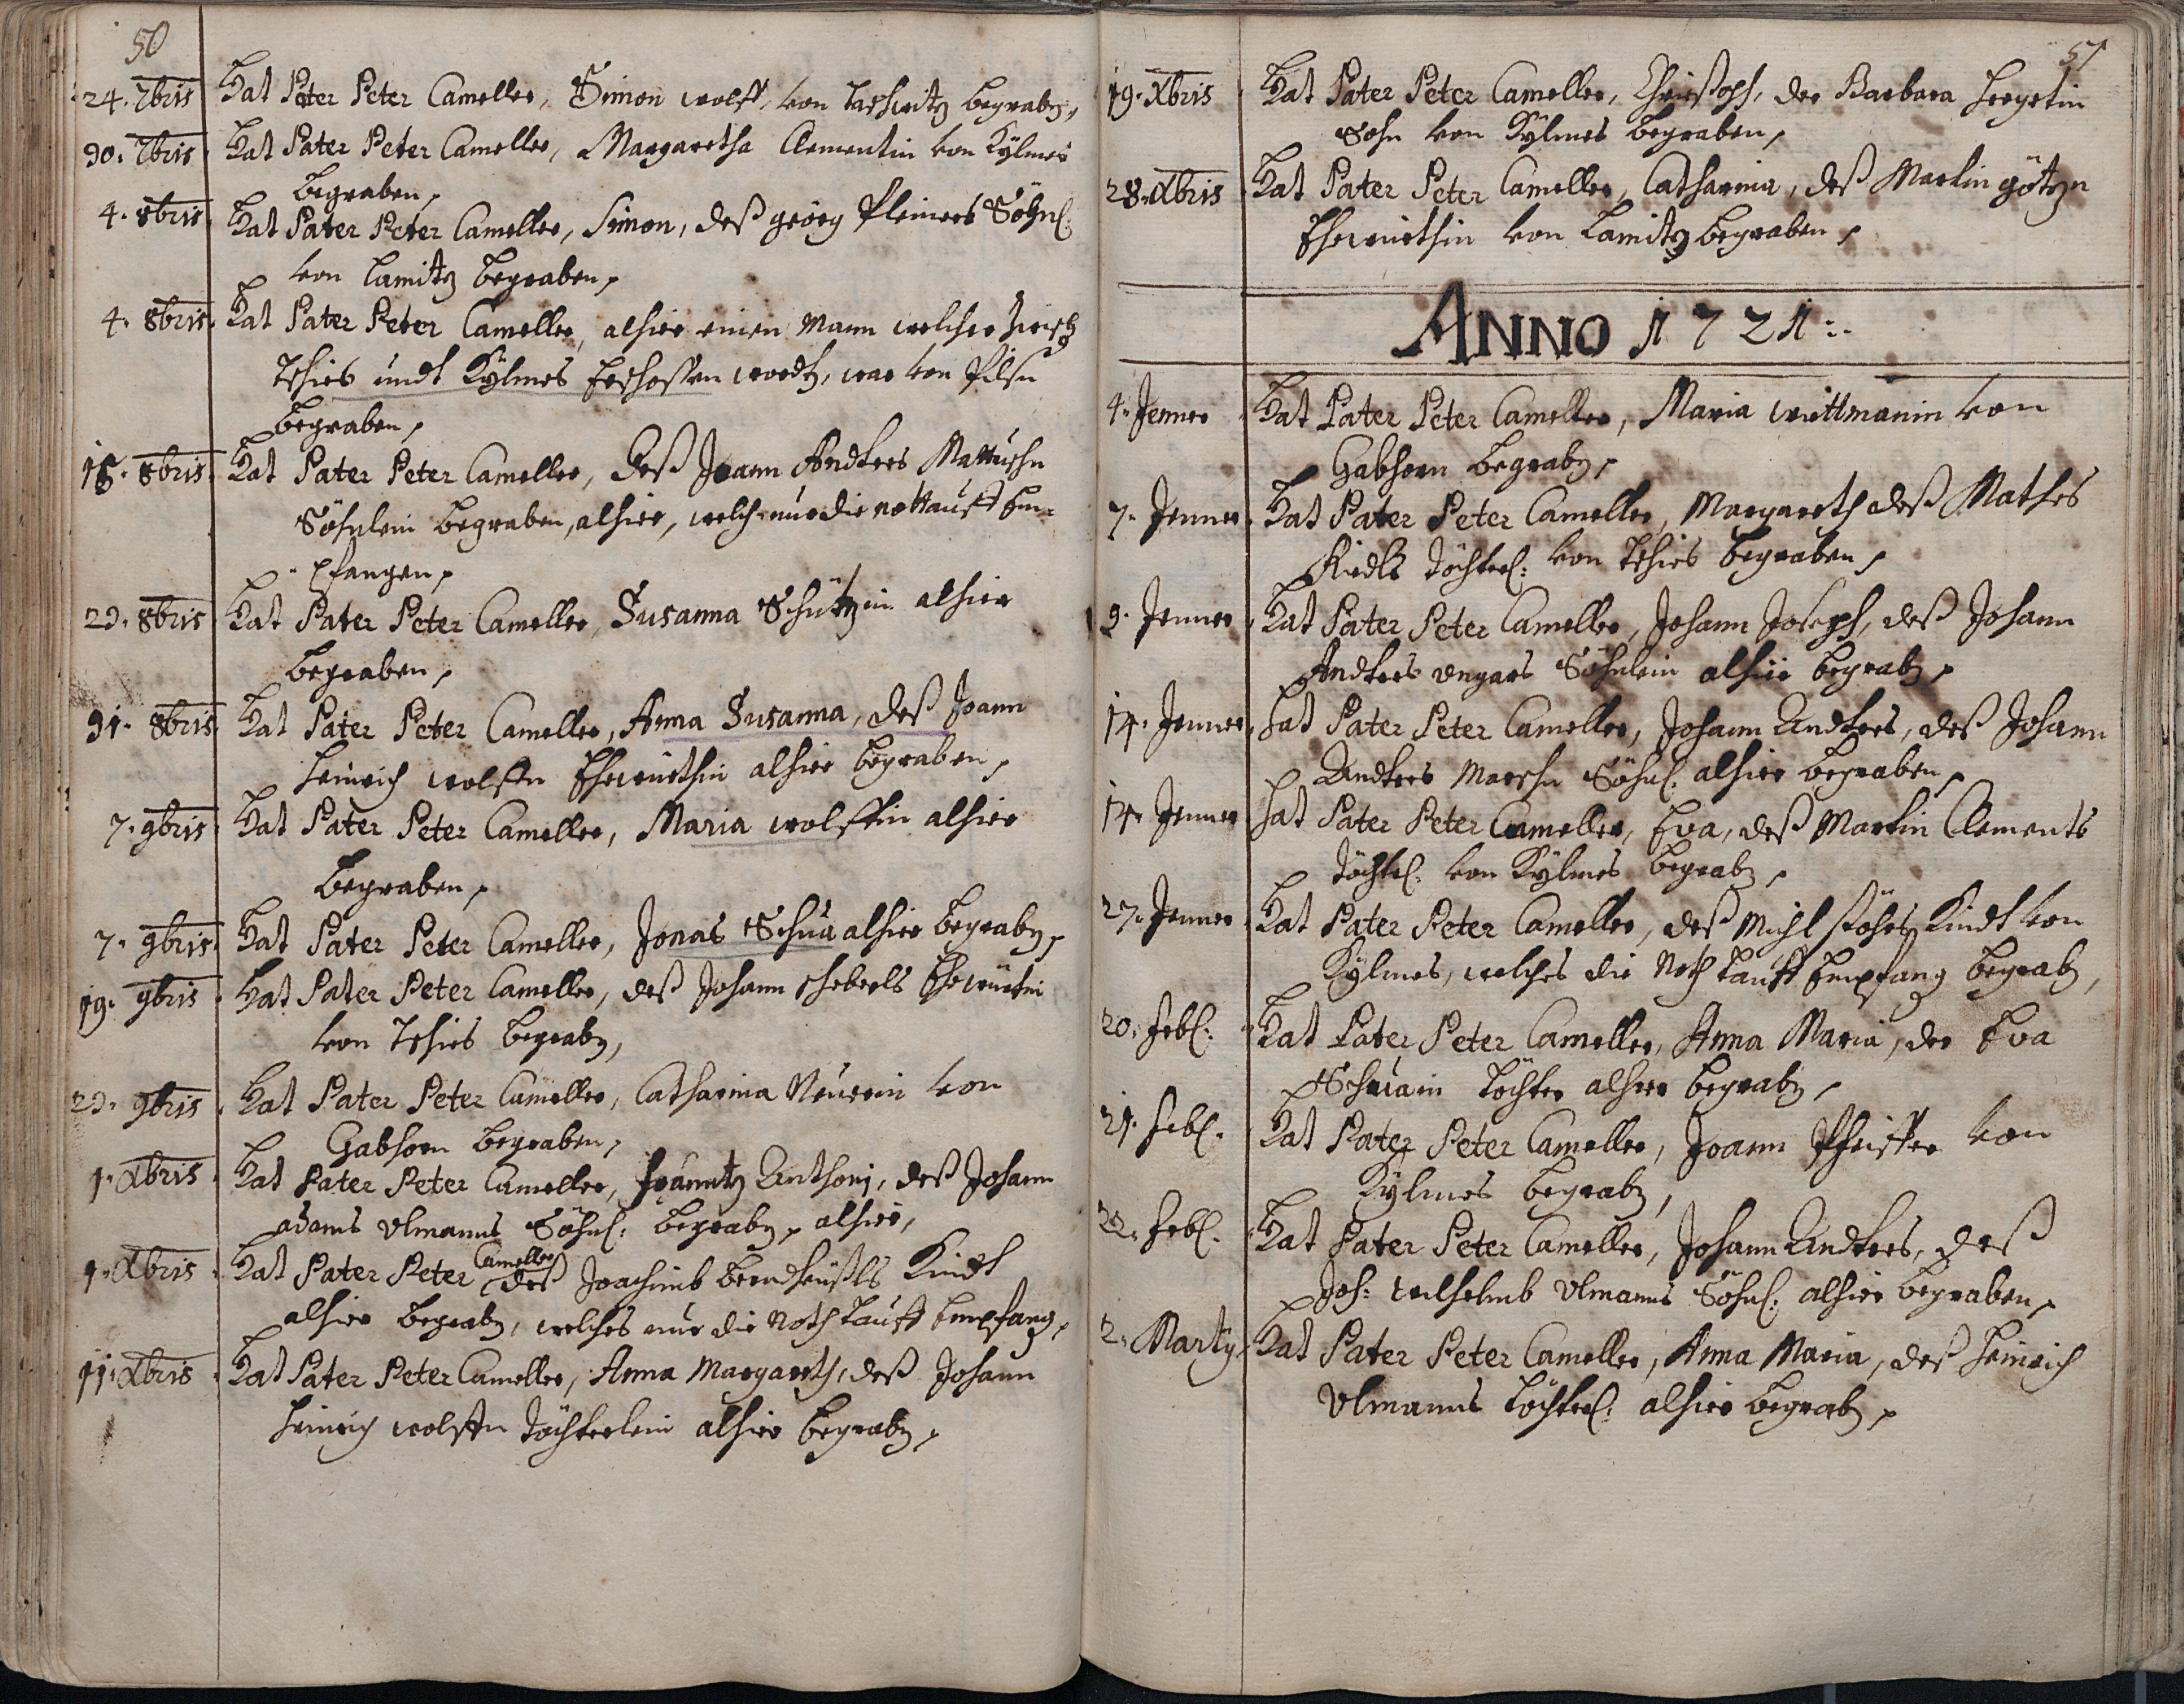 50
24. 7bris Hat Pater Peter Cameller, Simon wolff, von Taschwitz begrabn,
30. 7bris Hat Pater Peter Cameller, Margaretha Clementin von Kÿlmes
begraben,
4. 8bris Hat Pater Peter Cameller, Simon, deß georg Pleiners Söhnl:
von Lamitz begraben,
4. 8bris. Hat Pater Peter Cameller, alhier einen Mann welcher zwisch
Tschies undt Kÿlmes Erschossen wordtn, war von Pilsn
begraben,
18. 8bris. Hat Pater Peter Cameller, deß Joann Andrees Mattuschn
Söhnlein begraben, alhier, welch nur die nottauff Em-
pfangen,
23. 8bris Hat Pater Peter Cameller, Susanna Schützin alhier
begraben,
31. 8bris. Hat Pater Peter Cameller, Anna Susanna, deß Joann
Heinrich wolffn Ehewürthin alhier begraben,
7. 9bris. Hat Pater Peter Cameller, Maria wolffin alhier
begraben,
7. 9bris. Hat Pater Peter Cameller, Jonas Schua alhier begrabn,
19. 9bris Hat Pater Peter Cameller, deß Johann Ehewürtin
von Tschies begrabn,
23. 9bris. Hat Pater Peter Cameller, Catharina Neuerin von
Gabhorn begraben,
1. Xbris. Hat Pater Peter Cameller, Frantz Anthonj, deß Johann
adams Ulmanns Söhnl: begrabn, alhier,
9. Xbris. Hat Pater Peter Cameller deß Joachimb Kindt
alhier begrabn, welches nur die Noth tauff Empfang,
11. Xbris. Hat Pater Peter Cameller, Anna Margareth, deß Johann
Heinrich wolffn Töchterlein alhier begrabn,
51
19. Xbris Hat Pater Peter Cameller, Christoph, der Barbara Hergetin
Sohn von Kÿlmes begraben,
28. Xbris Hat Pater Peter Cameller, Catharina, deß Martin götzn
Ehewürthin von Lamitz begraben,
ANNO 1721:.
4. Jenner Hat Pater Peter Cameller, Maria wittmanin von
Gabhorn begrabn,
7. Jenner. Hat Pater Peter Cameller, Margareth deß Mathes
Riedls Töchterl: von Tschies begraben,
9. Jenner. Hat Pater Peter Cameller, Johann Joseph, deß Johann
Andrees Ungars Söhnlein alhier begrabn,
14. Jenner. Hat Pater Peter Cameller, Johann Andrees, deß Johann
Andrees Marschn Söhnl: alhier begraben,
14. Jenner Hat Pater Peter Cameller, Eva, deß Martin Clements
Töchterl: von Kÿlmes begrabn,
27. Jenner Hat Pater Peter Cameller, deß Michl Kindt von
Kÿlmes, welches die Noth tauff Empfang begrabn,
20. Febl: Hat Pater Peter Cameller, Anna Maria, der Eva
Schuain Tochter alhier begrabn,
21. Febl. Hat Pater Peter Cameller, Joann Pfeiffer von
Kÿlmes begrabn,
22. Febl. Hat Pater Peter Cameller, Johann Andrees, deß
Joh: wilhelmb Ulmanns Söhnl: alhier begraben,
2. Martÿ. Hat Pater Peter Cameller, Anna Maria, deß Heinrich
Ulmanns Töchterl: alhier begrabn,